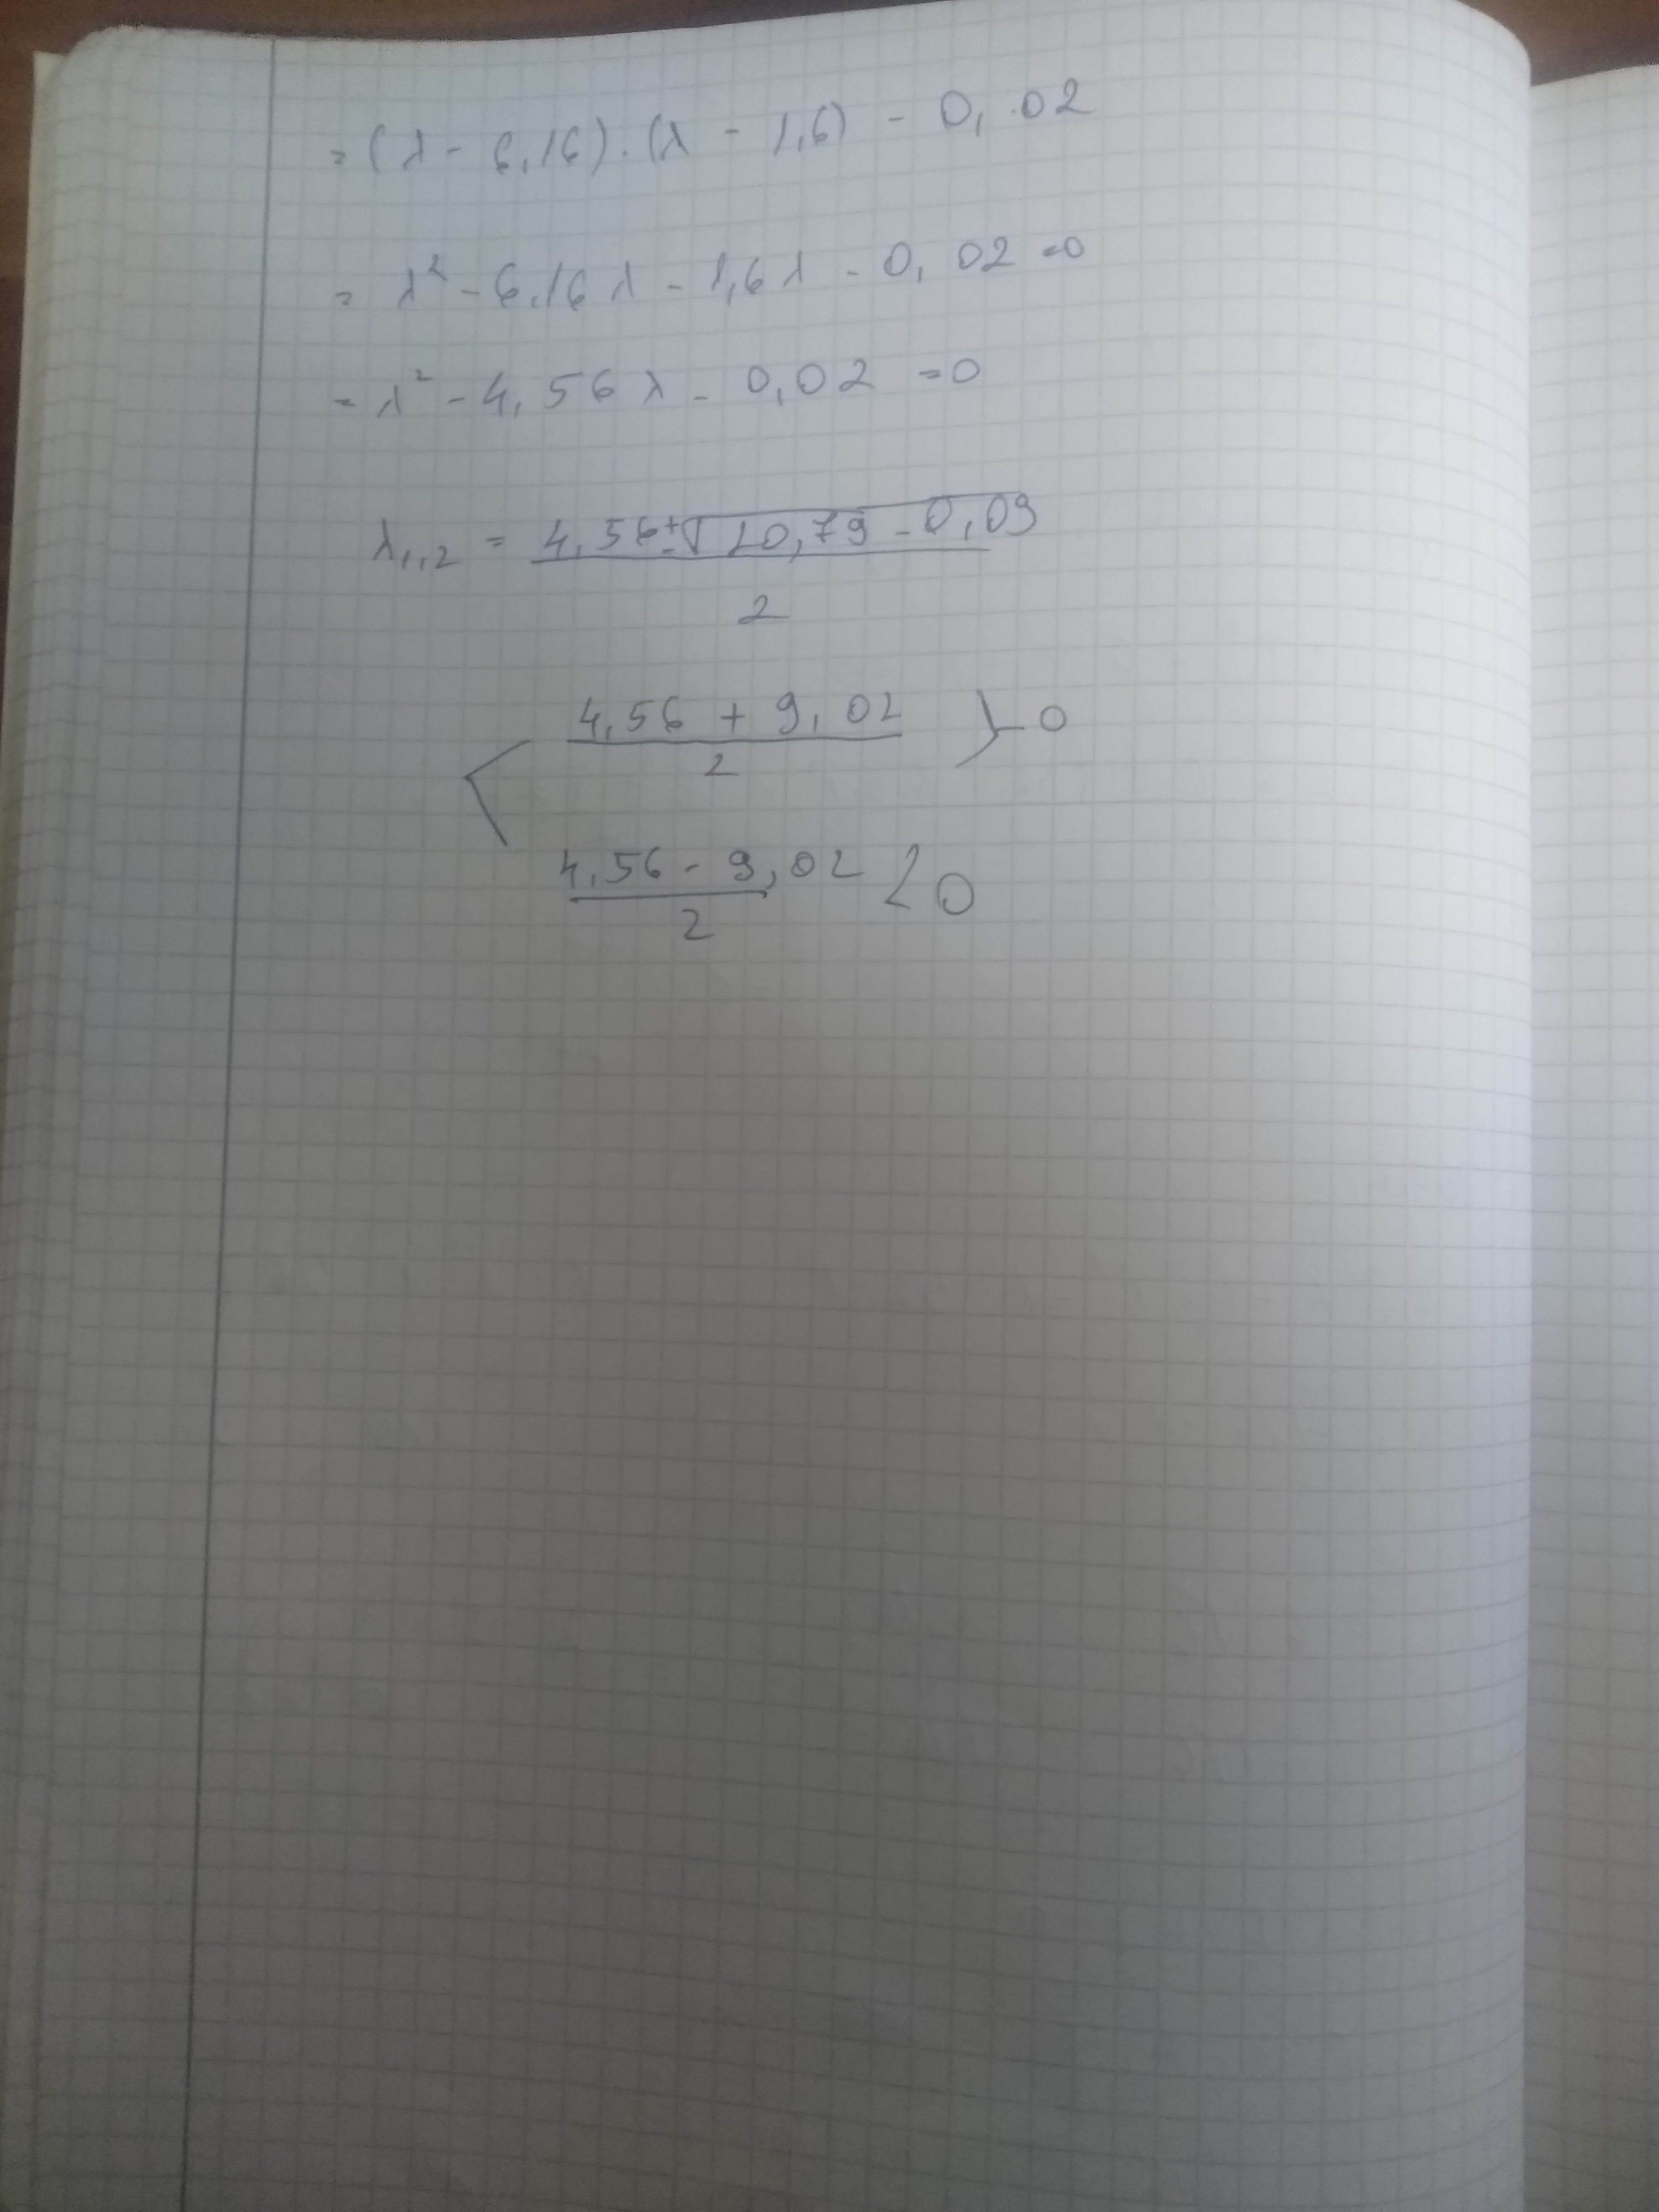 = (λ - 6,16) . (λ - 1,6) - 0,02
= λ² - 6,16 λ - 1,6 λ - 0,02 = 0
= λ² - 4,56 λ - 0,02 = 0
λ₁,,₂ = (4,56 ± √(20,79 - 0,09)) / 2
(4,56 + 9,02) / 2 > 0
(4,56 - 9,02) / 2 < 0